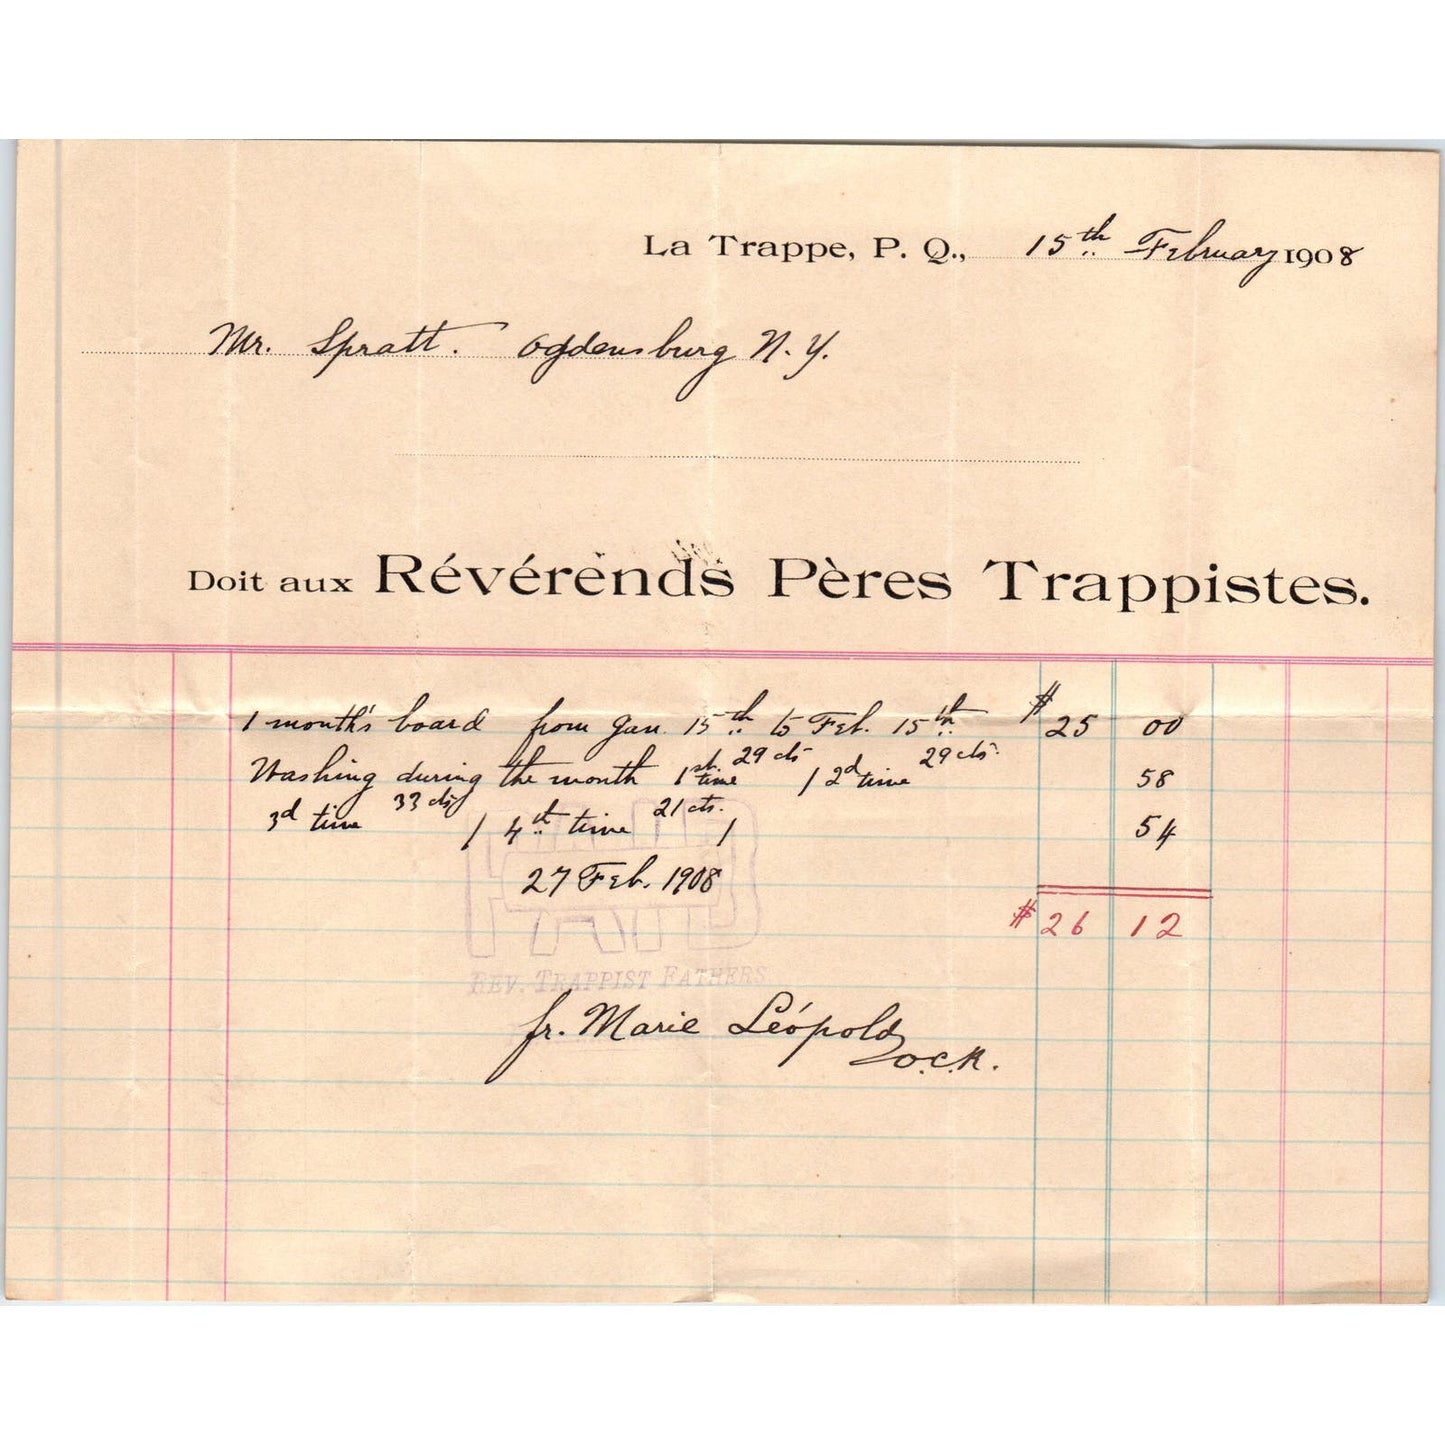 La Trappe, P. Q., 15th February 1908
Mr. Spratt. Ogdensburg N.Y.
Doit aux Révérends Pères Trappistes.
1 month's board from Jan. 15th to Feb. 15th $25 00
Washing during the month 1st time 29 cts / 2d time 29 cts. 58
3d time 33 cts / 4th time 21 cts. / 54
PAID
27 Feb. 1908
$26 12
REV. TRAPPIST FATHERS
fr. Marie Léopold
O.C.R.